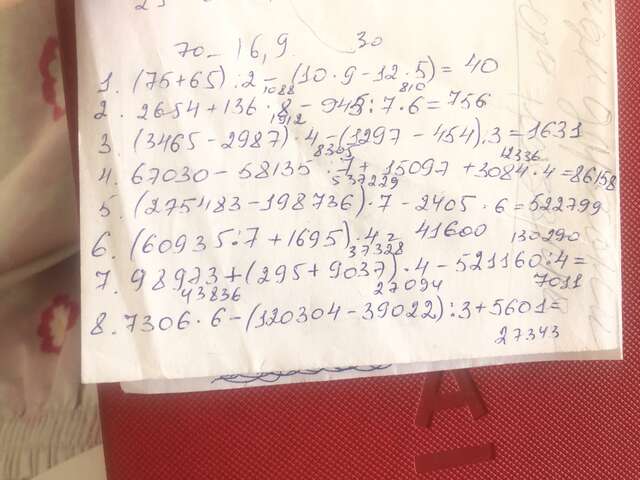 70 - 16,9 30
1. (75+65) : 2 - (10 · 9 - 12 · 5) = 40
1088 810
2. 2654 + 136 · 8 - 945 : 7 · 6 = 756
1912
3. (3465 - 2987) · 4 - (1297 - 454) · 3 = 1631
8305 12336
4. 67030 - 58135 : 7 + 15097 + 3084 · 4 = 86158
537229
5. (275483 - 198736) · 7 - 2405 · 6 = 522799
6. (60935 : 7 + 1695) · 4 = 41600
37328 130290
7. 98973 + (295 + 9037) · 4 - 521160 : 4 =
43836 27094 7011
8. 7306 · 6 - (120304 - 39022) : 3 + 5601 =
27343